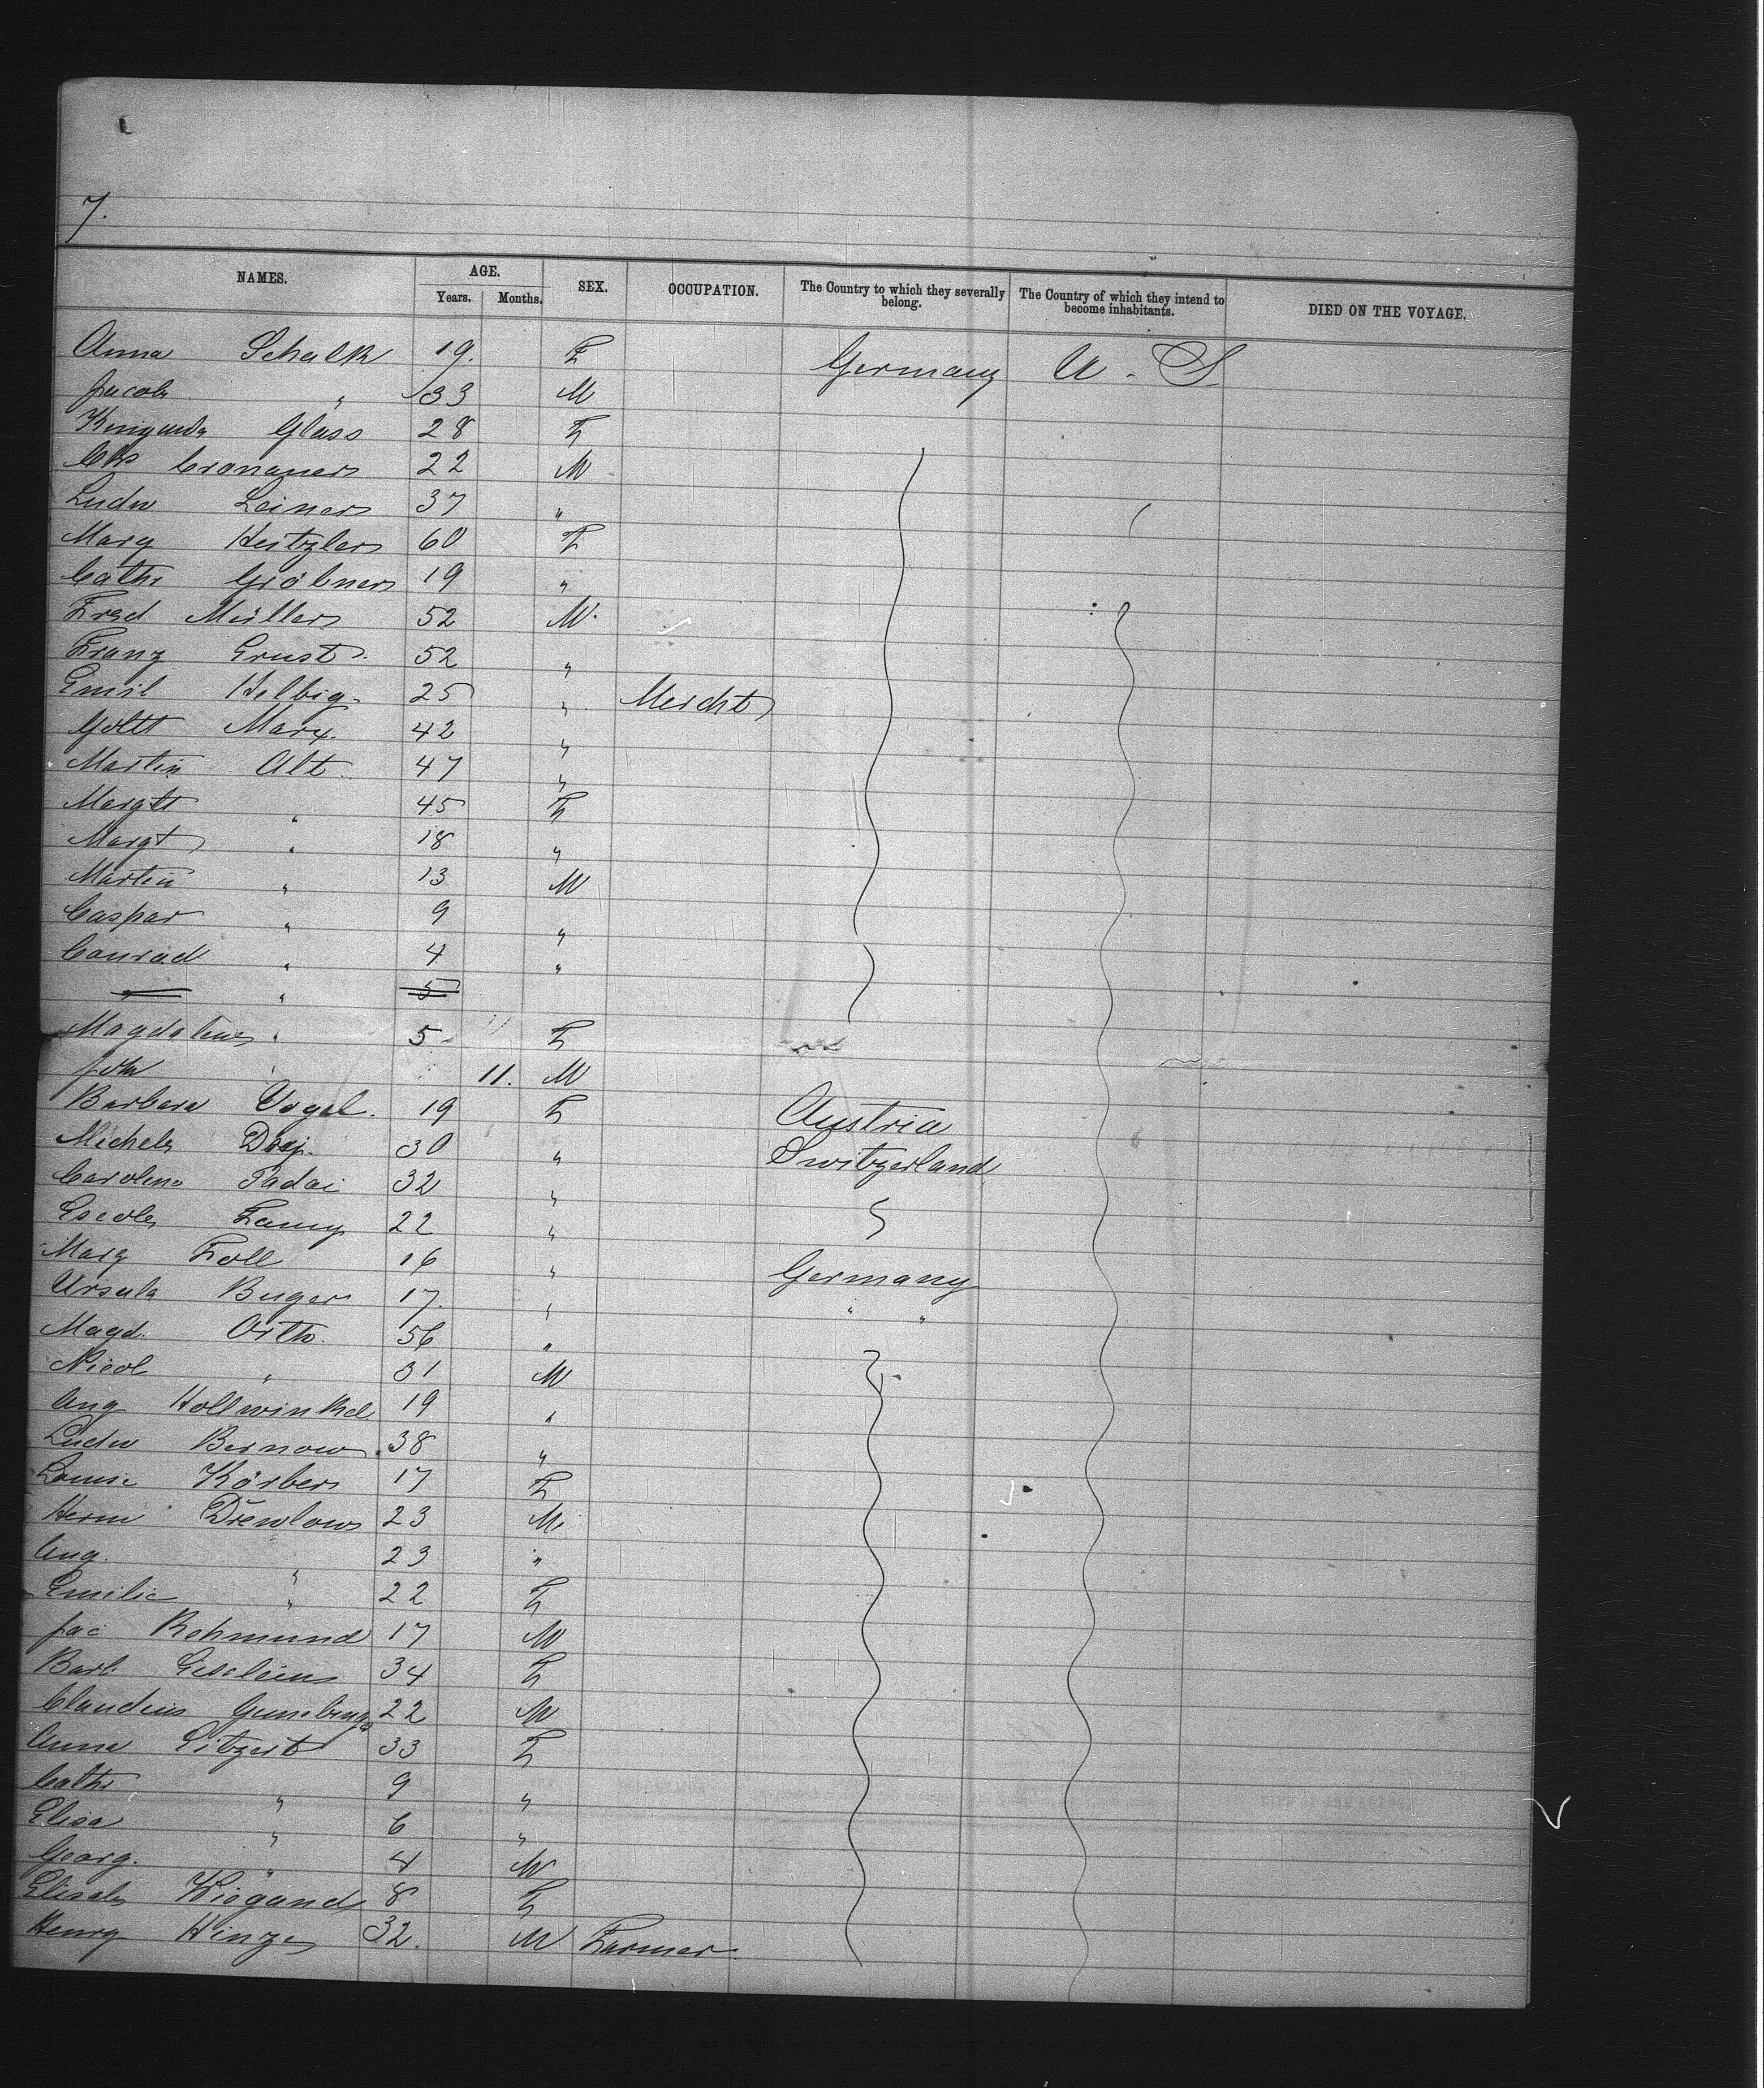 7.
NAMES. AGE. Years. Months. SEX. OCCUPATION. The Country to which they severally belong. The Country of which they intend to become inhabitants. DIED ON THE VOYAGE.
Anna Schalk 19. F Germany U. S.
Jacob " 33 M
Glass 28 F
Chs Cronauer 22 M
Ludw Leiner 37 "
Marg Hertzler 60 F
Cathr Gröbner 19 "
Fred Müller 52 M.
Franz Ernst 52 "
Emil Helbig. 25 " Mercht
Gottl Marx. 42 "
Martin Alt. 47 "
Margtt " 45 F
Margt " 18 "
Martin " 13 M
Caspar " 9 "
Conrad " 4 "
" 5
Magdalena " 5 F
Joh " 11. M
Barbara Vogel. 19 F Austria
Michele 30 " Switzerland
Caroline Padai 32 "
Famy 22 "
Marg Foll 16 " Germany
Ursula Buger 17. " " "
Magd. Orth. 56 "
Nicol " 31 M
Aug Hollwinkel 19 "
Ludw Bernow 38 "
Louise Körber 17 F
Herm Drewlow 23 M
Aug. " 23 "
Emilie " 22 F
Jac Rehmund 17 M
Barb. 34 F
Claudius 22 M
Anna Litzert 33 F
Cathr " 9 "
Elisa " 6 "
Georg. " 4 M
Elisab Wiegand 8 F
Henry Hinze 32. M Farmer.